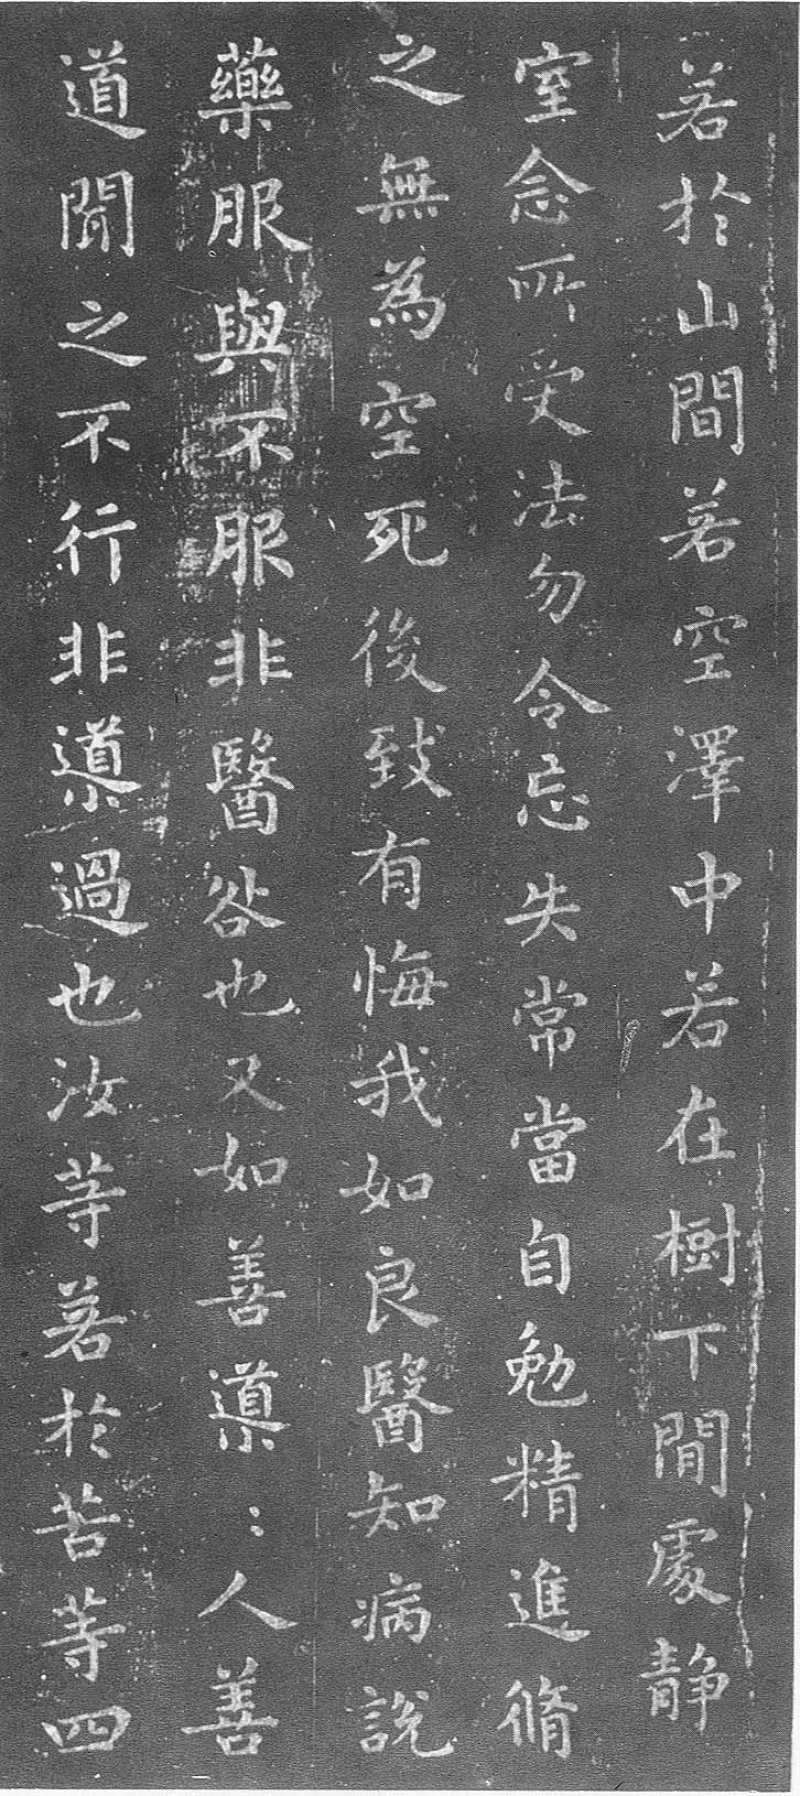 若於山間若空澤中若在樹下閒處静
室念所受法勿令忘失常當自勉精進脩
之無為空死後致有悔我如良醫知病説
藥服與不服非醫咎也又如善導〻人善
道聞之不行非導過也汝等若於苦等四